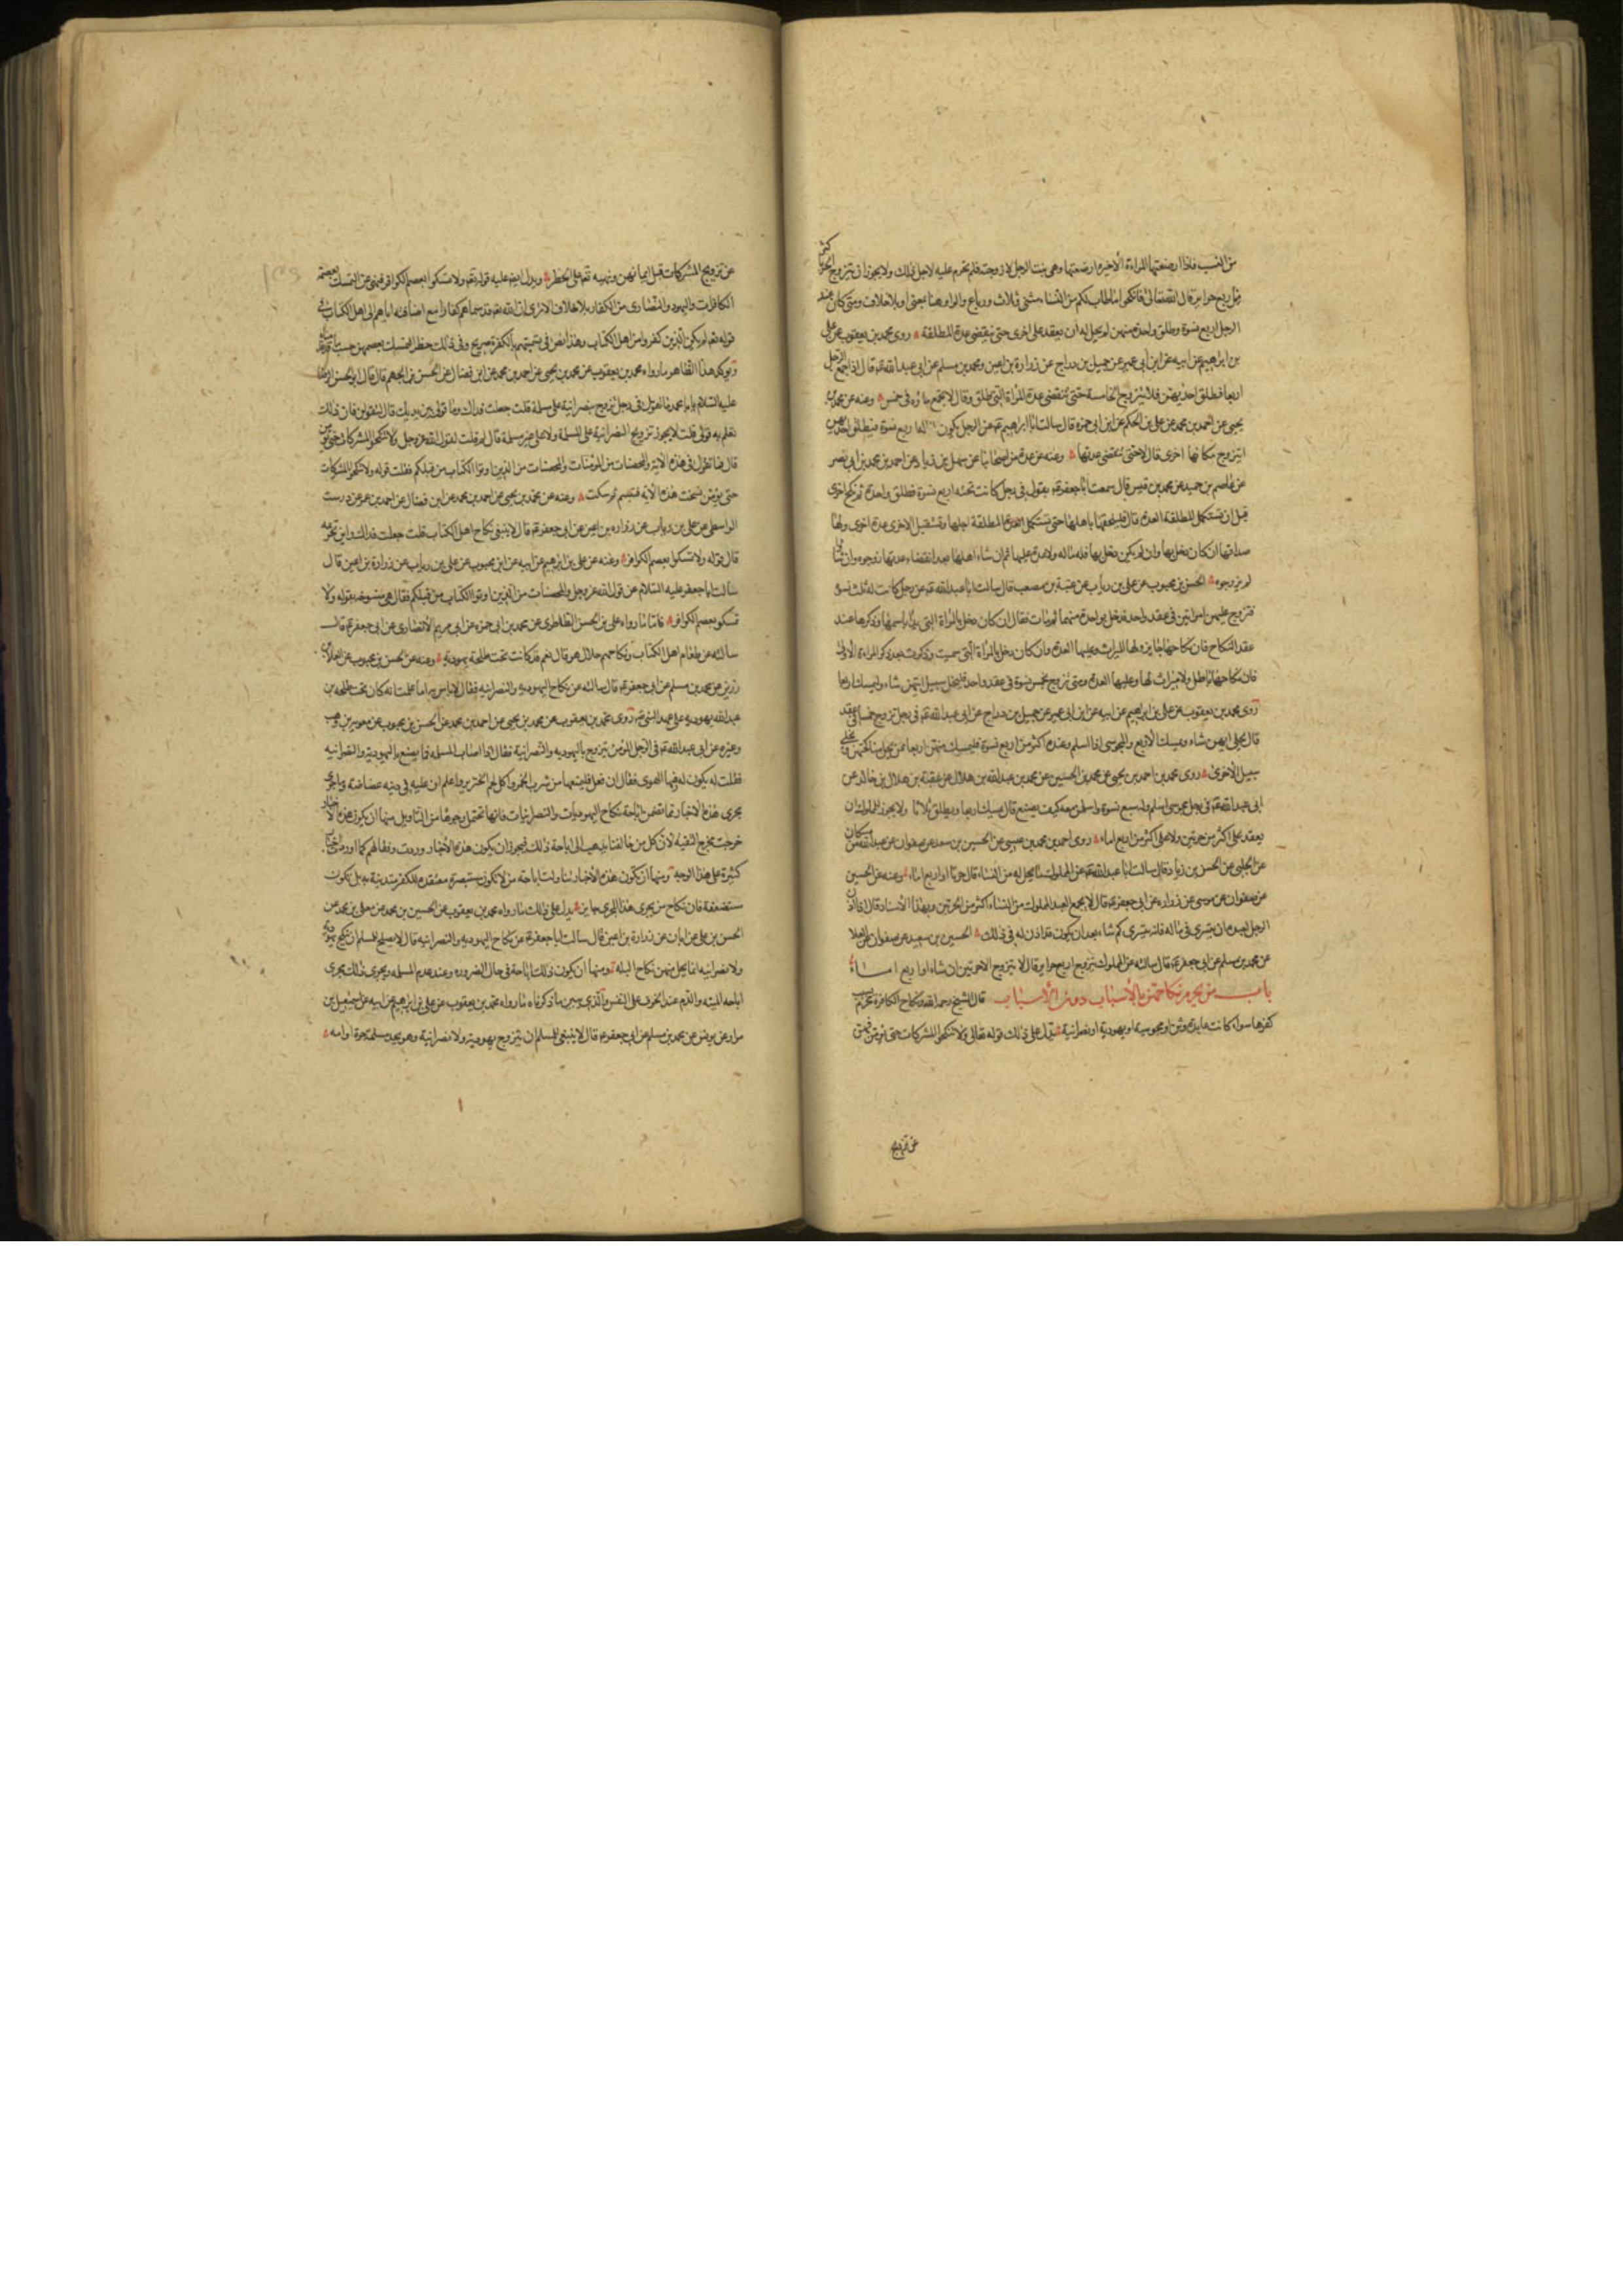 من النسب فاذا ارضعتها المراءة الاخيرة ارضعتها وهى بنت الرجل لا زوجته فلم تحرم عليه لاجل ذلك ولا يجوز ان يتزوج الحر باكثر
من اربع حراير قال الله تعالى فانكحوا ما طاب لكم من النساء مثنى وثلاث ورباع والواو هنا بمعنى او بلا خلاف ومتى كان عند
الرجل اربع نسوة وطلق واحدة منهن لم يحل له ان يعقد على اخرى حتى ينقضى عدة المطلقة روى محمد بن يعقوب عن على
بن ابراهيم عن ابيه عن ابن ابى عمير عن جميل بن دراج عن زرارة بن اعين ومحمد بن مسلم عن ابى عبد الله ع قال اذا جمع الرجل
اربعا فطلق احديهن فلا يتزوج الخامسة حتى تنقضى عدة المراة التى طلق وقال لا يجمع ماؤه فى خمس وعنه عن محمد بن
يحيى عن احمد بن محمد عن على بن الحكم عن ابن ابى حمزة قال سالت ابا ابراهيم ع عن الرجل يكون له اربع نسوة فيطلق احديهن
ايتزوج مكانها اخرى قال لا حتى تنقضى عدتها وعنه عن عدة من اصحابنا عن سهل بن زياد عن احمد بن محمد بن ابى نصر
عن عاصم بن حميد عن محمد بن قيس قال سمعت ابا جعفر ع يقول فى رجل كانت تحته اربع نسوة فطلق واحدة ثم نكح اخرى
قبل ان تستكمل المطلقة العدة قال فليلحقها باهلها حتى تستكمل المطلقة اجلها وتستقبل الاخرى عدة اخرى ولها
صداقها ان كان دخل بها وان لم يكن دخل بها فله ماله ولا عدة عليها ثم ان شاء اهلها بعد انقضاء عدتها زوجوه وان شاؤا
لم يزوجوه الحسن بن محبوب عن على بن رياب عن عنبسة بن مصعب قال سالت ابا عبد الله ع عن رجل كانت له ثلث نسوة
فتزوج عليهن امراتين فى عقد واحد فدخل بواحدة منهما ثم مات فقال ان كان دخل بالمراة التى بدا باسمها وذكرها عند
عقد النكاح فان نكاحها جايز ولها الميراث وعليها العدة وان كان دخل بالمراة التى سميت وذكرت بعد ذكر المراءة الاولى
فان نكاحها باطل ولا ميراث لها وعليها العدة ومتى تزوج بخمس نسوة فى عقد واحد فليخل سبيل ايتهن شاء وليمسك اربعا
روى محمد بن يعقوب عن على بن ابراهيم عن ابيه عن ابن ابى عمير عن جميل بن دراج عن ابى عبد الله ع فى رجل تزوج خمسا فى عقد
قال يخلى ايهن شاء ويمسك الاربع والمجوسى اذا اسلم وعنده اكثر من اربع نسوة فليمسك منهن اربعا
سبيل الاخرى روى محمد بن احمد بن يحيى عن محمد بن الحسين عن محمد بن عبد الله بن هلال عن عقبة بن هلال بن خالد عن
ابى عبد الله ع فى رجل مجوسى اسلم وله سبع نسوة واسلمن معه كيف يصنع قال يمسك اربعا ويطلق ثلاثا ولا يجوز للمملوك ان
يعقد على اكثر من حرتين ولا على اكثر من اربع اماء روى احمد بن محمد بن عيسى عن الحسين بن سعيد عن صفوان عن عبد الله بن مسكان
عن الحلبى عن الحسن بن زياد قال سالت ابا عبد الله ع عن المملوك ما يحل له من النساء قال حرتان او اربع اماء وعنه عن الحسين
عن صفوان عن موسى عن زرارة عن ابى جعفر ع قال لا يجمع العبد المملوك من النساء اكثر من الحرتين وبهذا الاسناد قال اذا اذن
الرجل لعبده ان يتسرى فى ماله فانه يتسرى كم شاء بعد ان يكون قد اذن له فى ذلك الحسين بن سعيد عن صفوان عن العلا
عن محمد بن مسلم عن ابى جعفر ع قال سالته عن المملوك يتزوج اربع حراير قال لا يتزوج الا حرتين ان شاء او اربع اماء
باب من يحرم نكاحهن بالاسباب دون الانساب قال الشيخ رحمه الله ونكاح الكافرة محرم بسبب
كفرها سواء كانت عابدة وثن او مجوسية او يهودية او نصرانية يدل على ذلك قوله تعالى ولا تنكحوا المشركات حتى يؤمن فنهى
عن تزويج
عن تزويج المشركات قبل ايمانهن ونهيه تعالى على الحظر ويدل ايضا عليه قوله تعالى ولا تمسكوا بعصم الكوافر فنهى عن التمسك بعصمة
الكافرات واليهود والنصارى من الكفار بلا خلاف الا ترى ان الله تعالى قد سماهم كفارا مع اضافته اياهم الى اهل الكتاب فى
قوله تعالى لم يكن الذين كفروا من اهل الكتاب وهذا نص فى تسميتهم بالكفرة صريح وفى ذلك حظر التمسك بعصمهن حسب ما قدمناه
ويؤكد هذا الظاهر ما رواه محمد بن يعقوب عن محمد بن يحيى عن احمد بن محمد عن ابن فضال عن الحسن بن الجهم قال قال ابو الحسن الرضا
عليه السلام يا ابا محمد ما تقول فى رجل تزوج نصرانية على مسلمة قلت جعلت فداك وما قولى بين يديك قال لتقولن فان ذلك
تعلم به قولى قلت لا يجوز تزويج النصرانية على المسلمة ولا على غير مسلمة قال لم قلت لقول الله عز وجل ولا تنكحوا المشركات حتى يؤمن
قال فما تقول فى هذه الاية والمحصنات من المؤمنات والمحصنات من الذين اوتوا الكتاب من قبلكم فقلت قوله ولا تنكحوا المشركات
حتى يؤمن نسخت هذه الاية فتبسم ثم سكت وعنه عن محمد بن يحيى عن احمد بن محمد عن ابن فضال عن احمد بن عمر عن درست
الواسطى عن على بن رياب عن زرارة بن اعين عن ابى جعفر ع قال لا ينبغى نكاح اهل الكتاب قلت جعلت فداك واين تحريمه
قال قوله ولا تمسكوا بعصم الكوافر وعنه عن على بن ابرهيم عن ابيه عن ابن محبوب عن على بن رياب عن زرارة بن اعين قال
سالت ابا جعفر عليه السلام عن قول الله عز وجل والمحصنات من الذين اوتوا الكتاب من قبلكم فقال هى منسوخة بقوله ولا
تمسكوا بعصم الكوافر فاما ما رواه على بن الحسن الطاطرى عن محمد بن ابى حمزة عن ابى مريم الانصارى عن ابى جعفر ع قال
سالته عن طعام اهل الكتاب ونكاحهم حلال هو قال نعم قد كانت تحت طلحة يهودية وعنه عن الحسن بن محبوب عن العلا بن
رزين عن محمد بن مسلم عن ابى جعفر ع قال سالته عن نكاح اليهودية والنصرانية فقال لا باس به اما علمت انه كان تحت طلحة بن
عبد الله يهودية على عهد النبى ص روى محمد بن يعقوب عن محمد بن يحيى عن احمد بن محمد عن الحسن بن محبوب عن معوية بن وهب
وغيره عن ابى عبد الله ع فى الرجل المؤمن يتزوج باليهودية والنصرانية فقال اذا اصاب المسلمة فما يصنع باليهودية والنصرانية
فقلت له يكون له فيها الهوى فقال ان فعل فليمنعها من شرب الخمر واكل لحم الخنزير واعلم ان عليه فى دينه غضاضة وما جرى
مجرى هذه الاخبار مما تضمن اباحة نكاح اليهوديات والنصرانيات فانها تحتمل وجوها من التاويل منها ان يكون هذه الاخبار
خرجت مخرج التقية لان كل من خالفنا يذهب الى اباحة ذلك فيجوز ان يكون هذه الاخبار وردت وفقا لهم كما وردت اخبار
كثيرة على هذا الوجه ومنها ان تكون هذه الاخبار تناولت اباحة من لا تكون مستبصرة معتقدة للكفر متدينة به بل تكون
مستضعفة فان نكاح من يجرى هذا المجرى جايز يدل على ذلك ما رواه محمد بن يعقوب عن الحسين بن محمد عن معلى بن محمد عن
الحسن بن على عن ابان عن زرارة بن اعين قال سالت ابا جعفر ع عن نكاح اليهودية والنصرانية قال لا يصلح للمسلم ان ينكح يهودية
ولا نصرانية انما يحل منهن نكاح البله ومنها ان يكون ذلك اباحة فى حال الضرورة وعند عدم المسلمة ويجرى ذلك مجرى
اباحة الميتة والدم عند الخوف على النفس والذى يبين ما ذكرناه ما رواه محمد بن يعقوب عن على بن ابرهيم عن ابيه عن اسمعيل بن
مرار عن يونس عن محمد بن مسلم عن ابى جعفر ع قال لا ينبغى للمسلم ان يتزوج يهودية ولا نصرانية وهو يجد مسلمة حرة او امة